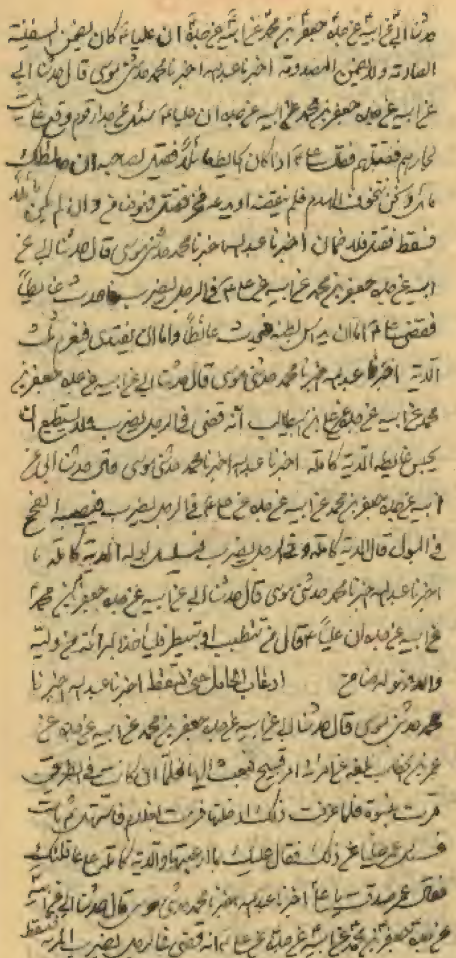 حدثنا ابي عن ابيه عن جده جعفر بن محمد عن ابيه عن جده ان عليا ع كان يضمن السفينة
الصادمة ولا يضمن المصدومة اخبرنا عبدالله اخبرنا محمد حدثني موسى قال حدثنا ابي
عن ابيه عن جده جعفر بن محمد عن ابيه عن جده ان عليا ع سئل عن جدار قوم وقع على
لجارهم فقتلهم فقال علي ع اذا كان الحايط مائلا فقيل لصاحبه ان حائطك
مائل ونحن نتخوف الهدم فلم ينقضه او يدعمه فخر فقتل فهو ضامن وان لم يكن مائلا
فسقط فقتل فلا ضمان اخبرنا عبدالله اخبرنا محمد حدثني موسى قال حدثنا ابي عن
ابيه عن جده جعفر بن محمد عن ابيه عن علي ع في الرجل يضرب فاحدث غايطا
فقضى علي ع اما ان يداس بطنه حتى يحدث غائطا واما ان يفتدى فيغرم ثلث
الدية اخبرنا عبدالله اخبرنا محمد حدثني موسى قال حدثنا ابي عن ابيه عن جده جعفر بن
محمد عن ابيه عن جده عن علي بن ابيطالب انه قضى في الرجل يضرب فلا يستطيع ان
يحبس غايطه الدية كاملة اخبرنا عبدالله اخبرنا محمد حدثني موسى قال حدثنا ابي عن
ابيه عن جده جعفر بن محمد عن ابيه عن جده عن علي ع في الرجل يضرب فيصيبه
في البول قال الدية كاملة وفي الرجل يضرب فيسلس بوله الدية كاملة
اخبرنا عبدالله اخبرنا محمد حدثني موسى قال حدثنا ابي عن ابيه عن جده جعفر بن محمد
عن ابيه عن جده ان عليا ع قال من تطبب او تبيطر فليأخذ البرائة من وليه
والا فهو له ضامن ارعاب الحامل حتى تسقط اخبرنا عبدالله اخبرنا
محمد حدثني موسى قال حدثنا ابي عن ابيه عن جده جعفر بن محمد عن ابيه عن جده عن
عمر بن الخطاب بلغه عن امراة امر قبيح فبعث اليها فلما ان كانت في الطريق
مرت بنسوة فلما عرفت ذلك
فسئل عمر عليا عن ذلك فقال عليك بما ارعبتها والدية كاملة على عاقلتك
فقال عمر صدقت يا علي اخبرنا عبدالله اخبرنا محمد حدثني موسى قال حدثنا ابي عن ابيه
عن جده جعفر بن محمد عن ابيه عن جده عن علي ع انه قضى في الرجل يضرب المرئة فتسقط